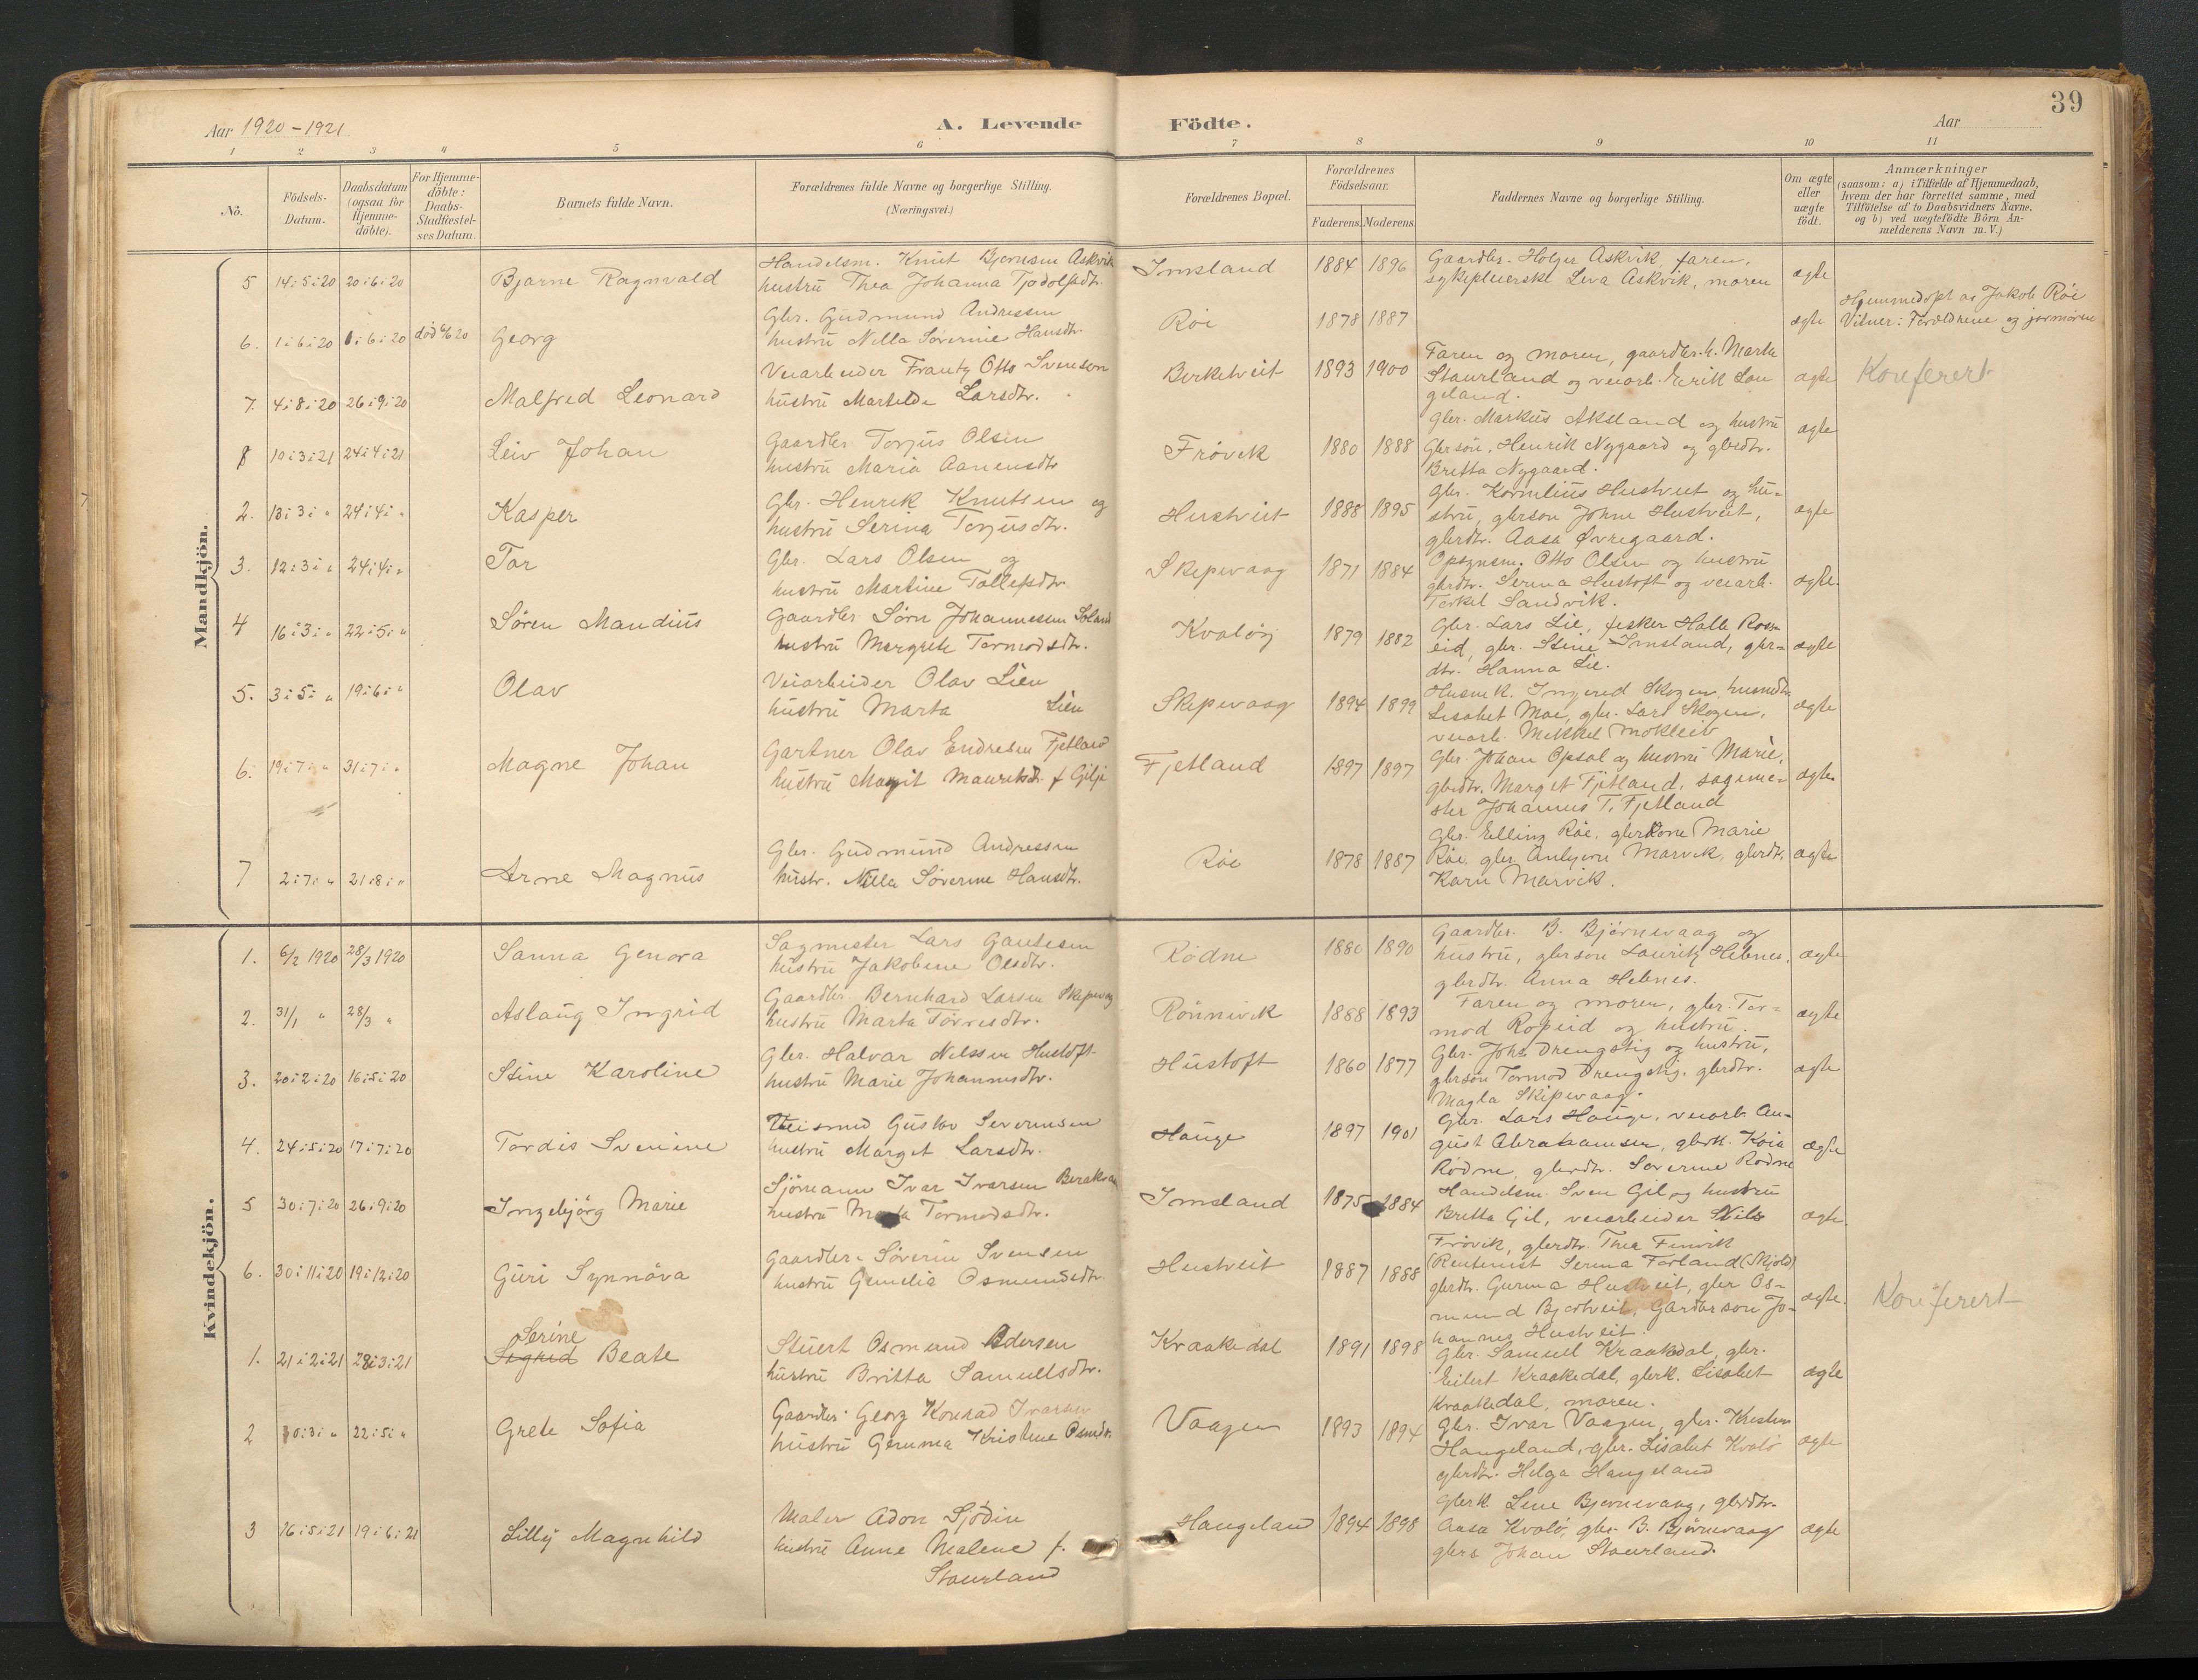 39
Aar 1920-1921
A. Levende Födte.
Aar
1 2 3 4 5 6 7 8 9 10 11
No.
Födsels-Datum.
Daabsdatum (ogsaa for Hjemme-döbte).
For Hjemme-döbte: Daabs-Stadfæstel-ses Datum.
Barnets fulde Navn.
Forældrenes fulde Navne og borgerlige Stilling. (Næringsvei.)
Forældrenes Bopæl.
Forældrenes Födselsaar.
Faderens. Moderens.
Faddernes Navne og borgerlige Stilling.
Om ægte eller uægte födt.
Anmærkninger
(saasom: a) i Tilfælde af Hjemmedaab,
hvem der har forrettet samme, med
Tilföielse af to Daabsvidners Navne,
og b) ved uægtefödte Börn An-
melderens Navn m. V.)
Mandkjön.
5 14:5:20 20:6:20 Bjarne Ragnvald
Handelsm. Knut Bjørnsen Askvik
hustru Thea Johanna Tjodolfsdtr.
Imsland 1884 1896
Gaardbr. Holger Askvik, faren,
sykepleierske Leva Askvik, moren
ægte
6. 1:6:20 1:6:20 død 6/6 20 Georg
Gbr. Gudmund Andressen
hustru Nilla Søverine Hansdtr.
Røe 1878 1887
ægte
Hjemmedøpt av Jakob Røe
Vitner: Forældrene og jormoren
7. 4:8:20 26:9:20 Malfred Leonard
Veiarbeider Frantz Otto Svenson
hustru Martilde Larsdtr.
Birketveit 1893 1900
Faren og moren, gaardbr.k. Marta
Staurland og veiarb. Erik Lan
geland.
ægte
Konferert
8 10:3:21 24:4:21 Leiv Johan
Gaardbr. Torjus Olsen
hustru Maria Aanensdtr
Frøvik 1880 1888
Gbr. Markus Aksland og hustru
Gbrsøn. Henrik Nygaard og gbrdtr.
Britta Nygaard.
ægte
2. 13:3:" 24:4:" Kasper
Gbr. Henrik Knutsen og
hustru Serina Torjusdtr.
Hustveit 1888 1895
Gbr. Kornelius Hustveit og hu-
stru, gbrson Johne Hustveit,
gbrdtr. Aasa Øvregaard.
ægte
3. 12:3:" 24:4:" Tor
Gbr. Lars Olsen og
hustru Martine Tollefsdtr
Skipevaag 1871 1884
Opsynsm. Otto Olsen og hustru
gbrdtr. Serina Hustoft og veiarb.
Torkel Sandvik.
ægte.
4 16:3:" 22:5:" Søren Mandius
Gaardbr Sørn Johannessen Soland
hustru Margrete Tormodsdtr.
Kvaløy 1879 1882
Gbr. Lars Lie, fisker Halle Rosse
eid, gbr. Stine Imsland, gbr-
dtr. Hanna Lie.
ægte
5. 3:5:" 19:6:" Olav
Veiarbeider Olav Lien
hustru Marta Lien
Skipevaag 1894 1899
Husm k. Ingerid Skogen, husmdtr
Lisabet Moe, gbr. Lars Skogen,
veiarb. Mikkel Mokleiv
ægte
6. 19:7:" 31:7:" Magne Johan
Gartner Olav Endresen Fjetland
hustru Magit Mauritsdtr. f Gilje
Fjetland 1897 1897
Gbr. Johan Opsal og hustru Marie,
gbrdtr. Marget Fjetland, sagme-
ster Johannes T. Fjetland
ægte
7 2:7:" 21:8:" Arne Magnus
Gbr. Gudmund Andressen
hustr. Nilla Søverine Hansdtr.
Røe 1878 1887
Gbr. Elling Røe, gbrkone Marie
Røe, gbr Anbjørn Marvik, gbrdtr.
Karn Marvik.
ægte
Kvindekjön.
1. 6/2 1920 28/3 1920 Sanna Genora
Sagmester Lars Gautesen
hustru Jakobine Olsdtr.
Rødne 1880 1890
Gaardbr. B. Bjørnevaag og
hustru, gbrson Lauritz Hebnes,
gbrdtr. Anna Hebnes.
ægte
2. 31/1 " 28/3 " Aslaug Ingrid
Gaardbr. Bernhard Larsen Skipevaag
hustru Marta Tørresdtr.
Rønnevik 1888 1893
Faren og moren, gbr. Tor-
mod Ropeid og hustru.
ægte
3. 20:2:20 16:5:20 Stine Karoline
Gbr. Halvar Nilssen Hustoft
hustru Marie Johannesdtr.
Hustoft 1860 1877
Gbr. Johs Drengstig og hustru,
gbrsøn Tormod Drengstig. gbrdtr.
Magla Skipevaag.
ægte
4. 24:5:20 17:7:20 Tordis Sverine
Gustav Severinsen
hustru Marget Larsdtr.
Hauge 1897 1901
Gbr. Lars Hauge, veiarb. Au-
gust Abrahamsen, gbrk. Koia
Rødne, gbrdtr. Soverine Rødne
ægte
5 30:7:20 26:9:20 Ingebjørg Marie
Sjømann Ivar Ivarsen
hustru Marta Tormodsdtr.
Imsland 1875 1884
Handelsm. Sven Gil og hustru
Britta Gil, veiarbeider Nils
Frøvik, gbrdtr. Thea Frøvik
ægte.
6. 30:11:20 19:12:20 Guri Synnöva
Gaardbr. Søverin Svensen
hustru Gemelia Osmundsdtr.
Hustveit 1887 1888
(Rentenist Serina Forland (Skjold)
gbrdtr. Gurina Hustveit, gbr Os-
mund Bjortveit, Gardbrson Jo-
hannes Hustveit.
ægte.
Konferert
1. 21:2:21 28:3:21 Serine Sigrid Beate
Stuert Osmund Pedersen
hustru Britta Samuelsdtr.
Kraakedal 1891 1898
Gbr. Samuel Kraakdal, gbr.
Eilert Kraakedal, gbrk. Lisabet
Kraakedal, moren.
ægte
2 10:3:" 22:5:" Grete Sofia
Gaardbr. Georg Konrad Ivarsen
hustru Gemma Kristine Osmdtr.
Vaagen 1893 1894
Gbr. Ivar Vaagen, gbr. Kristen
Haugeland, gbr. Lisabet Kvalø
gbrdtr. Helga Haugeland
ægte
3 16:5:21 19:6:21 Lilly Magnhild
Maler Adon Sjødin
hustru Anne Malene f.
Staurland
Haugeland 1894 1898
Gbrk Line Bjørnevaag, gbrdtr.
Aasa Kvalø, gbr. B. Bjørnevaag
gbrs Johan Staurland.
ægte